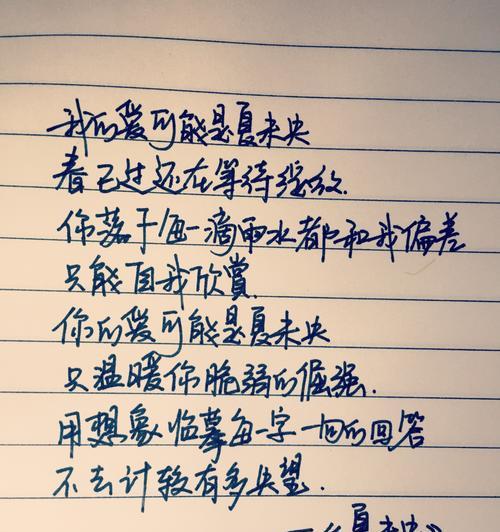 我的爱可能是夏未央
春已过还在等待绽放.
你落下每一滴雨水都和我偏差
只能自我欣賞.
你的爱可能是夏未央
只温暖你脆弱的倔强.
用想象临摹每一字一句的回答
不去计较有多失望.
夏未央》